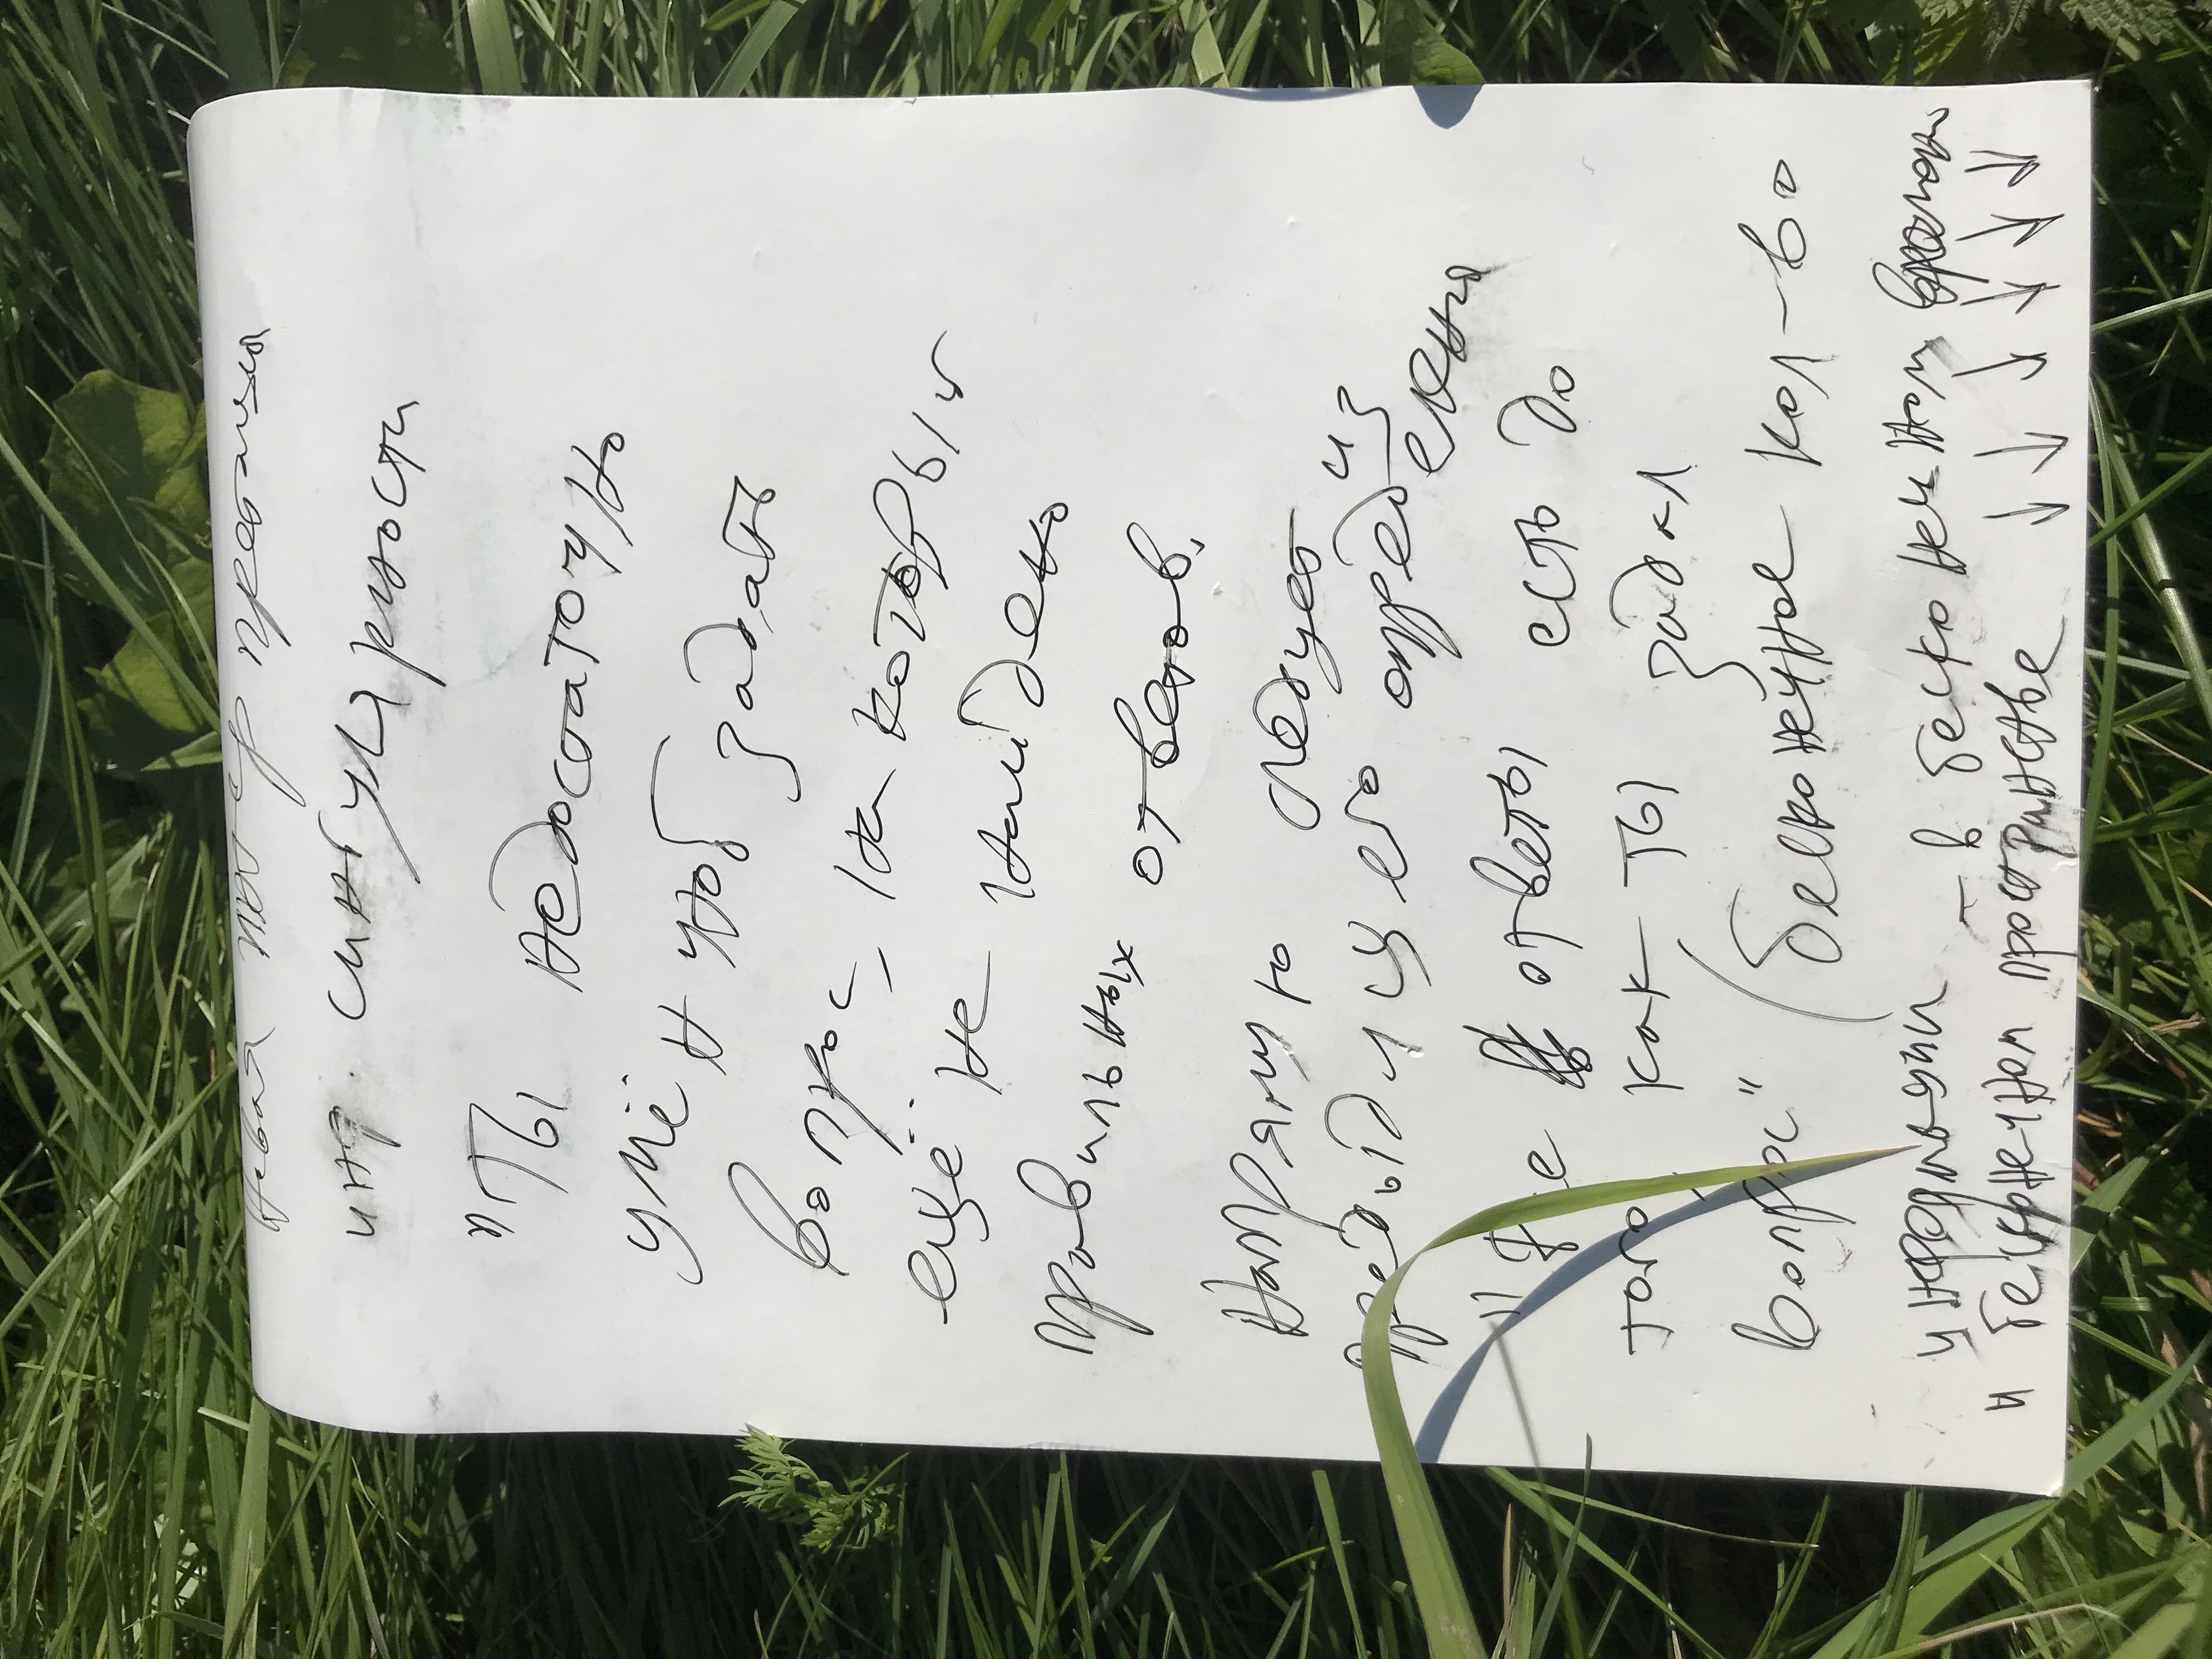 Новая
инф. сингулярности
"Ты недостаточно
умён чтоб задать
вопрос, на который
ещё не найдено
правильных ответов.
Напрямую следует
предыдущего определения из
"Все ответы есть до
того, как ты задал
вопрос" (бесконечное кол-во
информации - в бесконечном времени
и бесконечном пространстве ↓ ↓ ↓ ↓ ↓ ↓